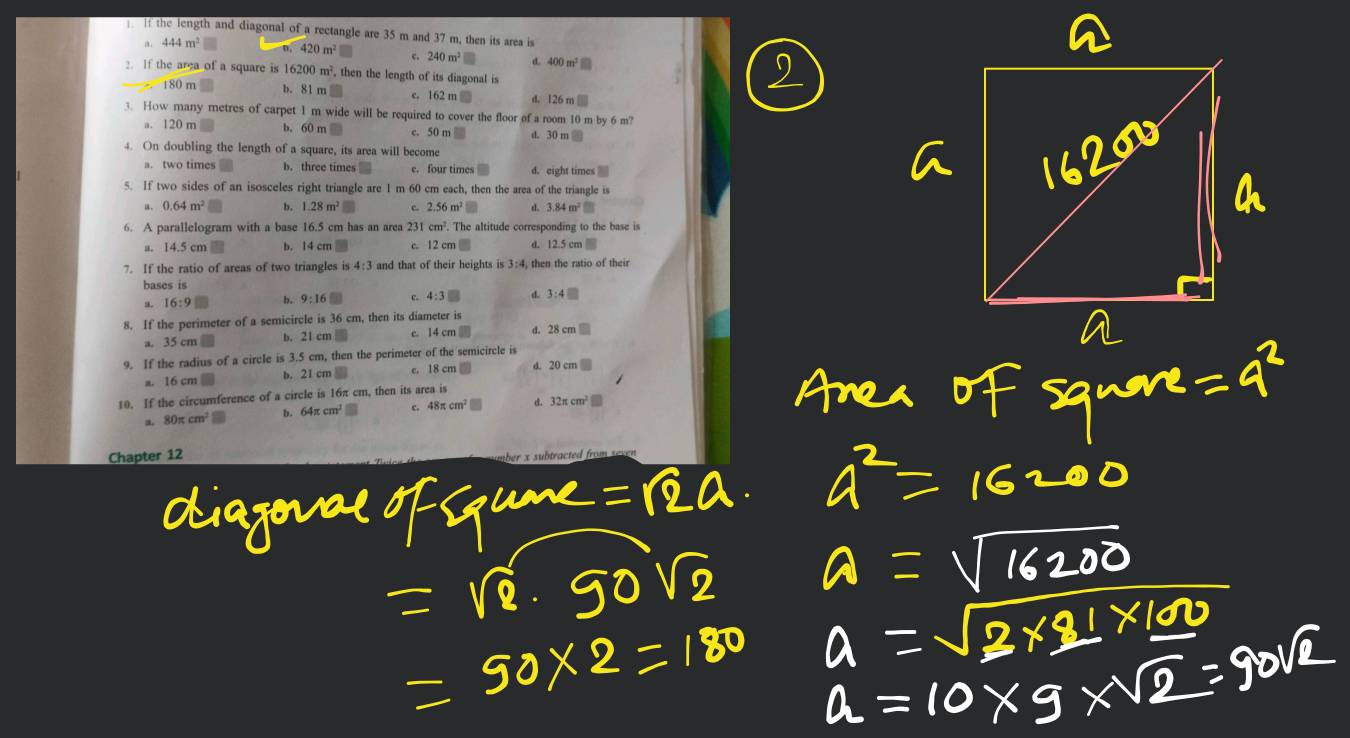 1. If the length and diagonal of a rectangle are 35 m and 37 m, then its area is
a. 444 m² b. 420 m² c. 240 m² d. 400 m²
2. If the area of a square is 16200 m², then the length of its diagonal is
180 m b. 81 m c. 162 m d. 126 m
3. How many metres of carpet 1 m wide will be required to cover the floor of a room 10 m by 6 m?
a. 120 m b. 60 m c. 50 m d. 30 m
4. On doubling the length of a square, its area will become
a. two times b. three times c. four times d. eight times
5. If two sides of an isosceles right triangle are 1 m 60 cm each, then the area of the triangle is
a. 0.64 m² b. 1.28 m² c. 2.56 m² d. 3.84 m²
6. A parallelogram with a base 16.5 cm has an area 231 cm². The altitude corresponding to the base is
a. 14.5 cm b. 14 cm c. 12 cm d. 12.5 cm
7. If the ratio of areas of two triangles is 4:3 and that of their heights is 3:4, then the ratio of their
bases is
a. 16:9 b. 9:16 c. 4:3 d. 3:4
8. If the perimeter of a semicircle is 36 cm, then its diameter is
a. 35 cm b. 21 cm c. 14 cm d. 28 cm
9. If the radius of a circle is 3.5 cm, then the perimeter of the semicircle is
a. 16 cm b. 21 cm c. 18 cm d. 20 cm
10. If the circumference of a circle is 16π cm, then its area is
a. 80π cm² b. 64π cm² c. 48π cm² d. 32π cm²
Chapter 12
number x subtracted from seven
2
a
a
16200
a
a
Area of square = a²
a² = 16200
a = √16200
a = √2×81×100
a = 10 × 9 × √2 = 90√2
diagonal of square = √2a.
= √2. 90√2
= 90×2 = 180